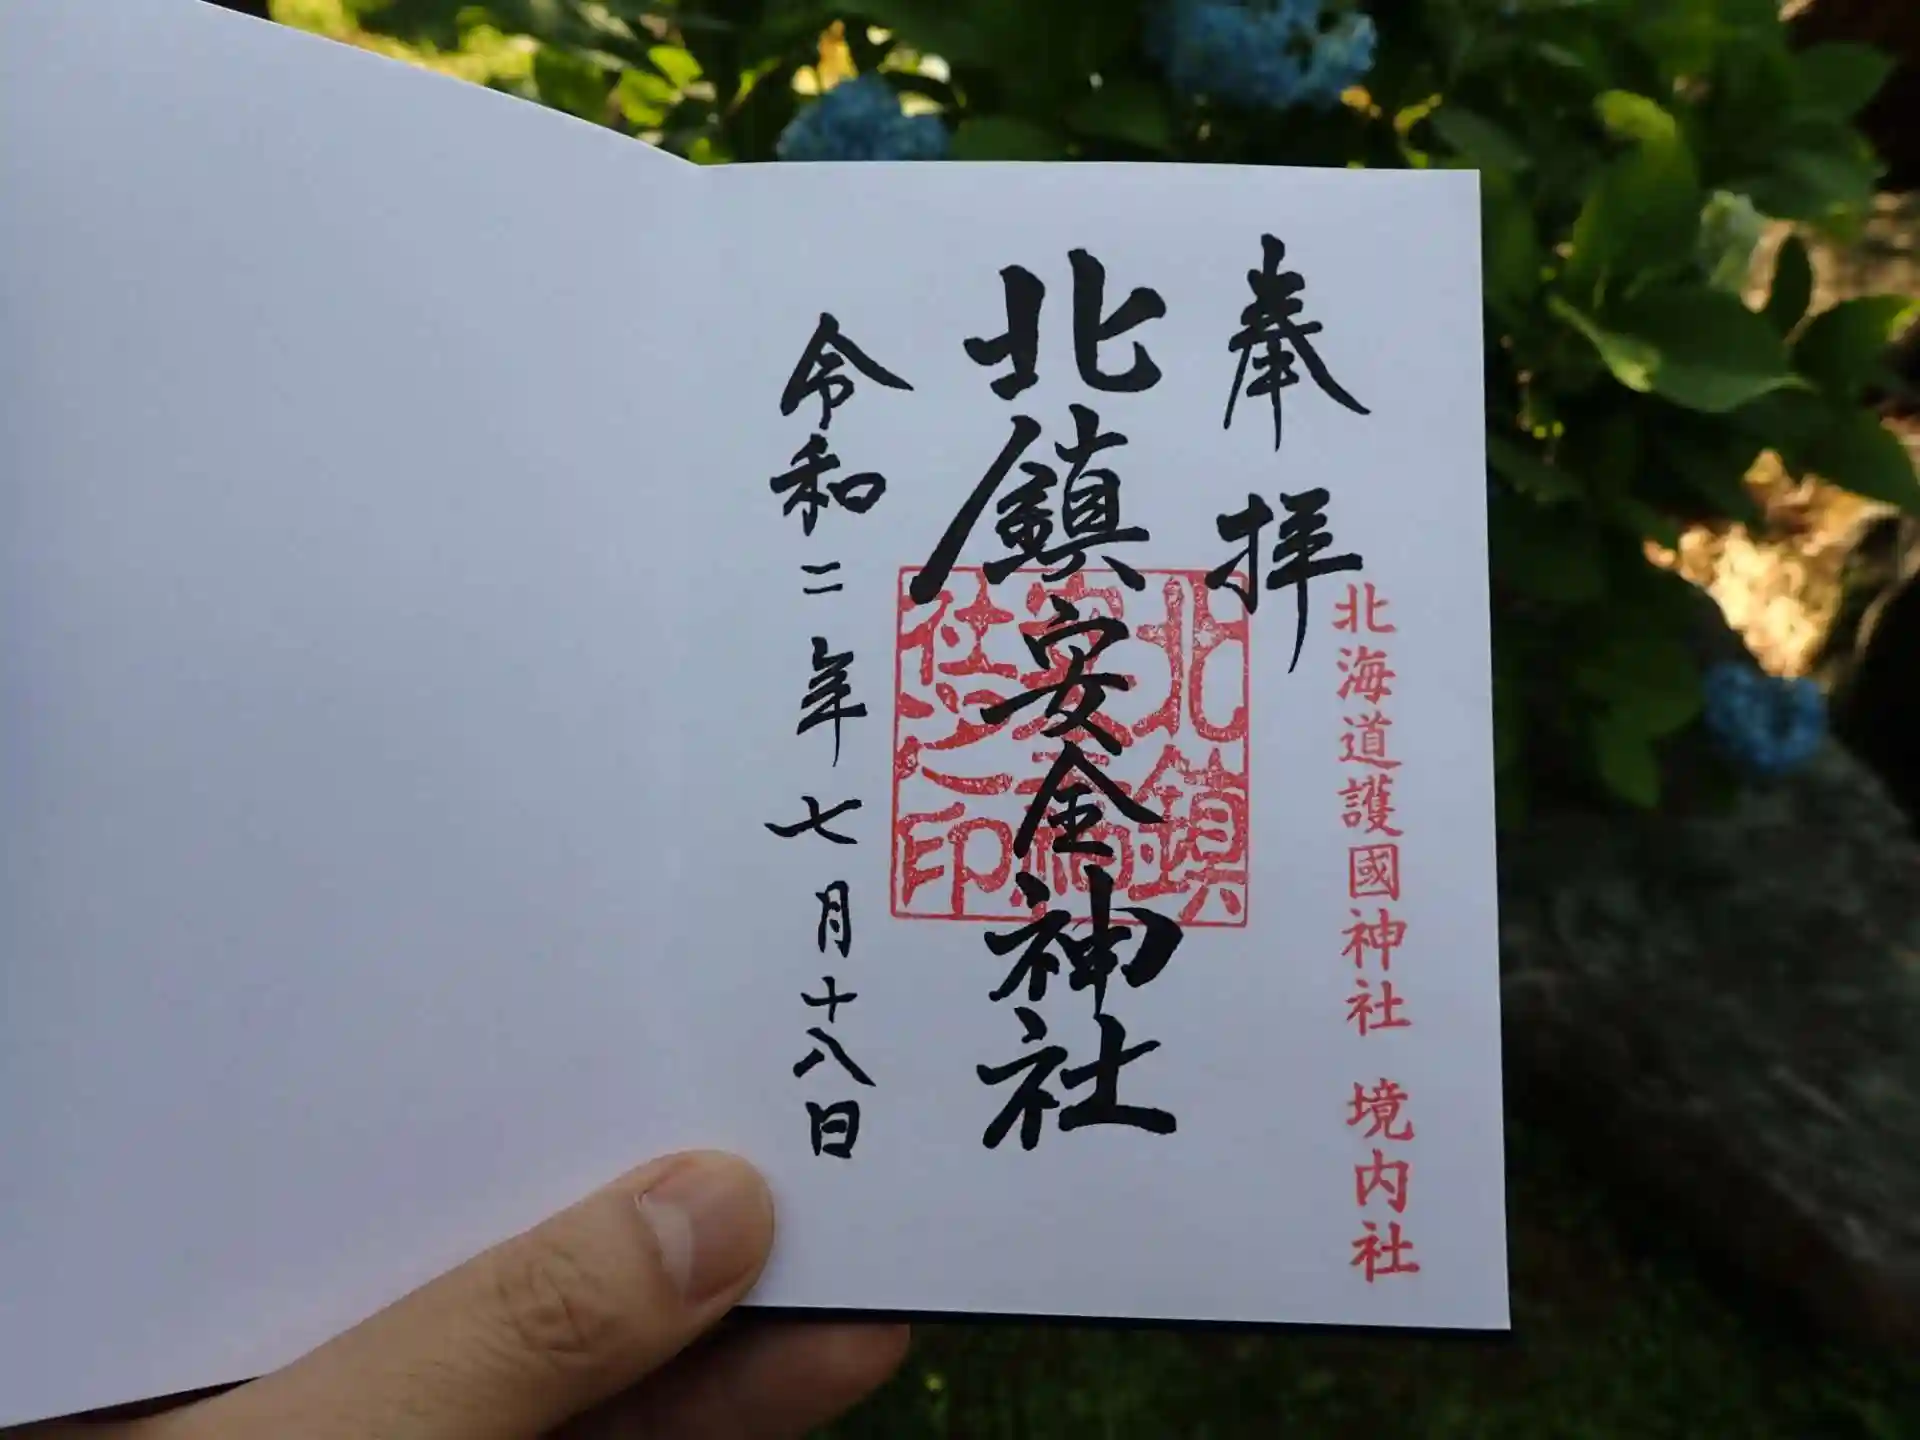 奉拝
北海道護國神社 境内社
北鎮安全神社
北鎮安全神社之印
令和二年七月十八日